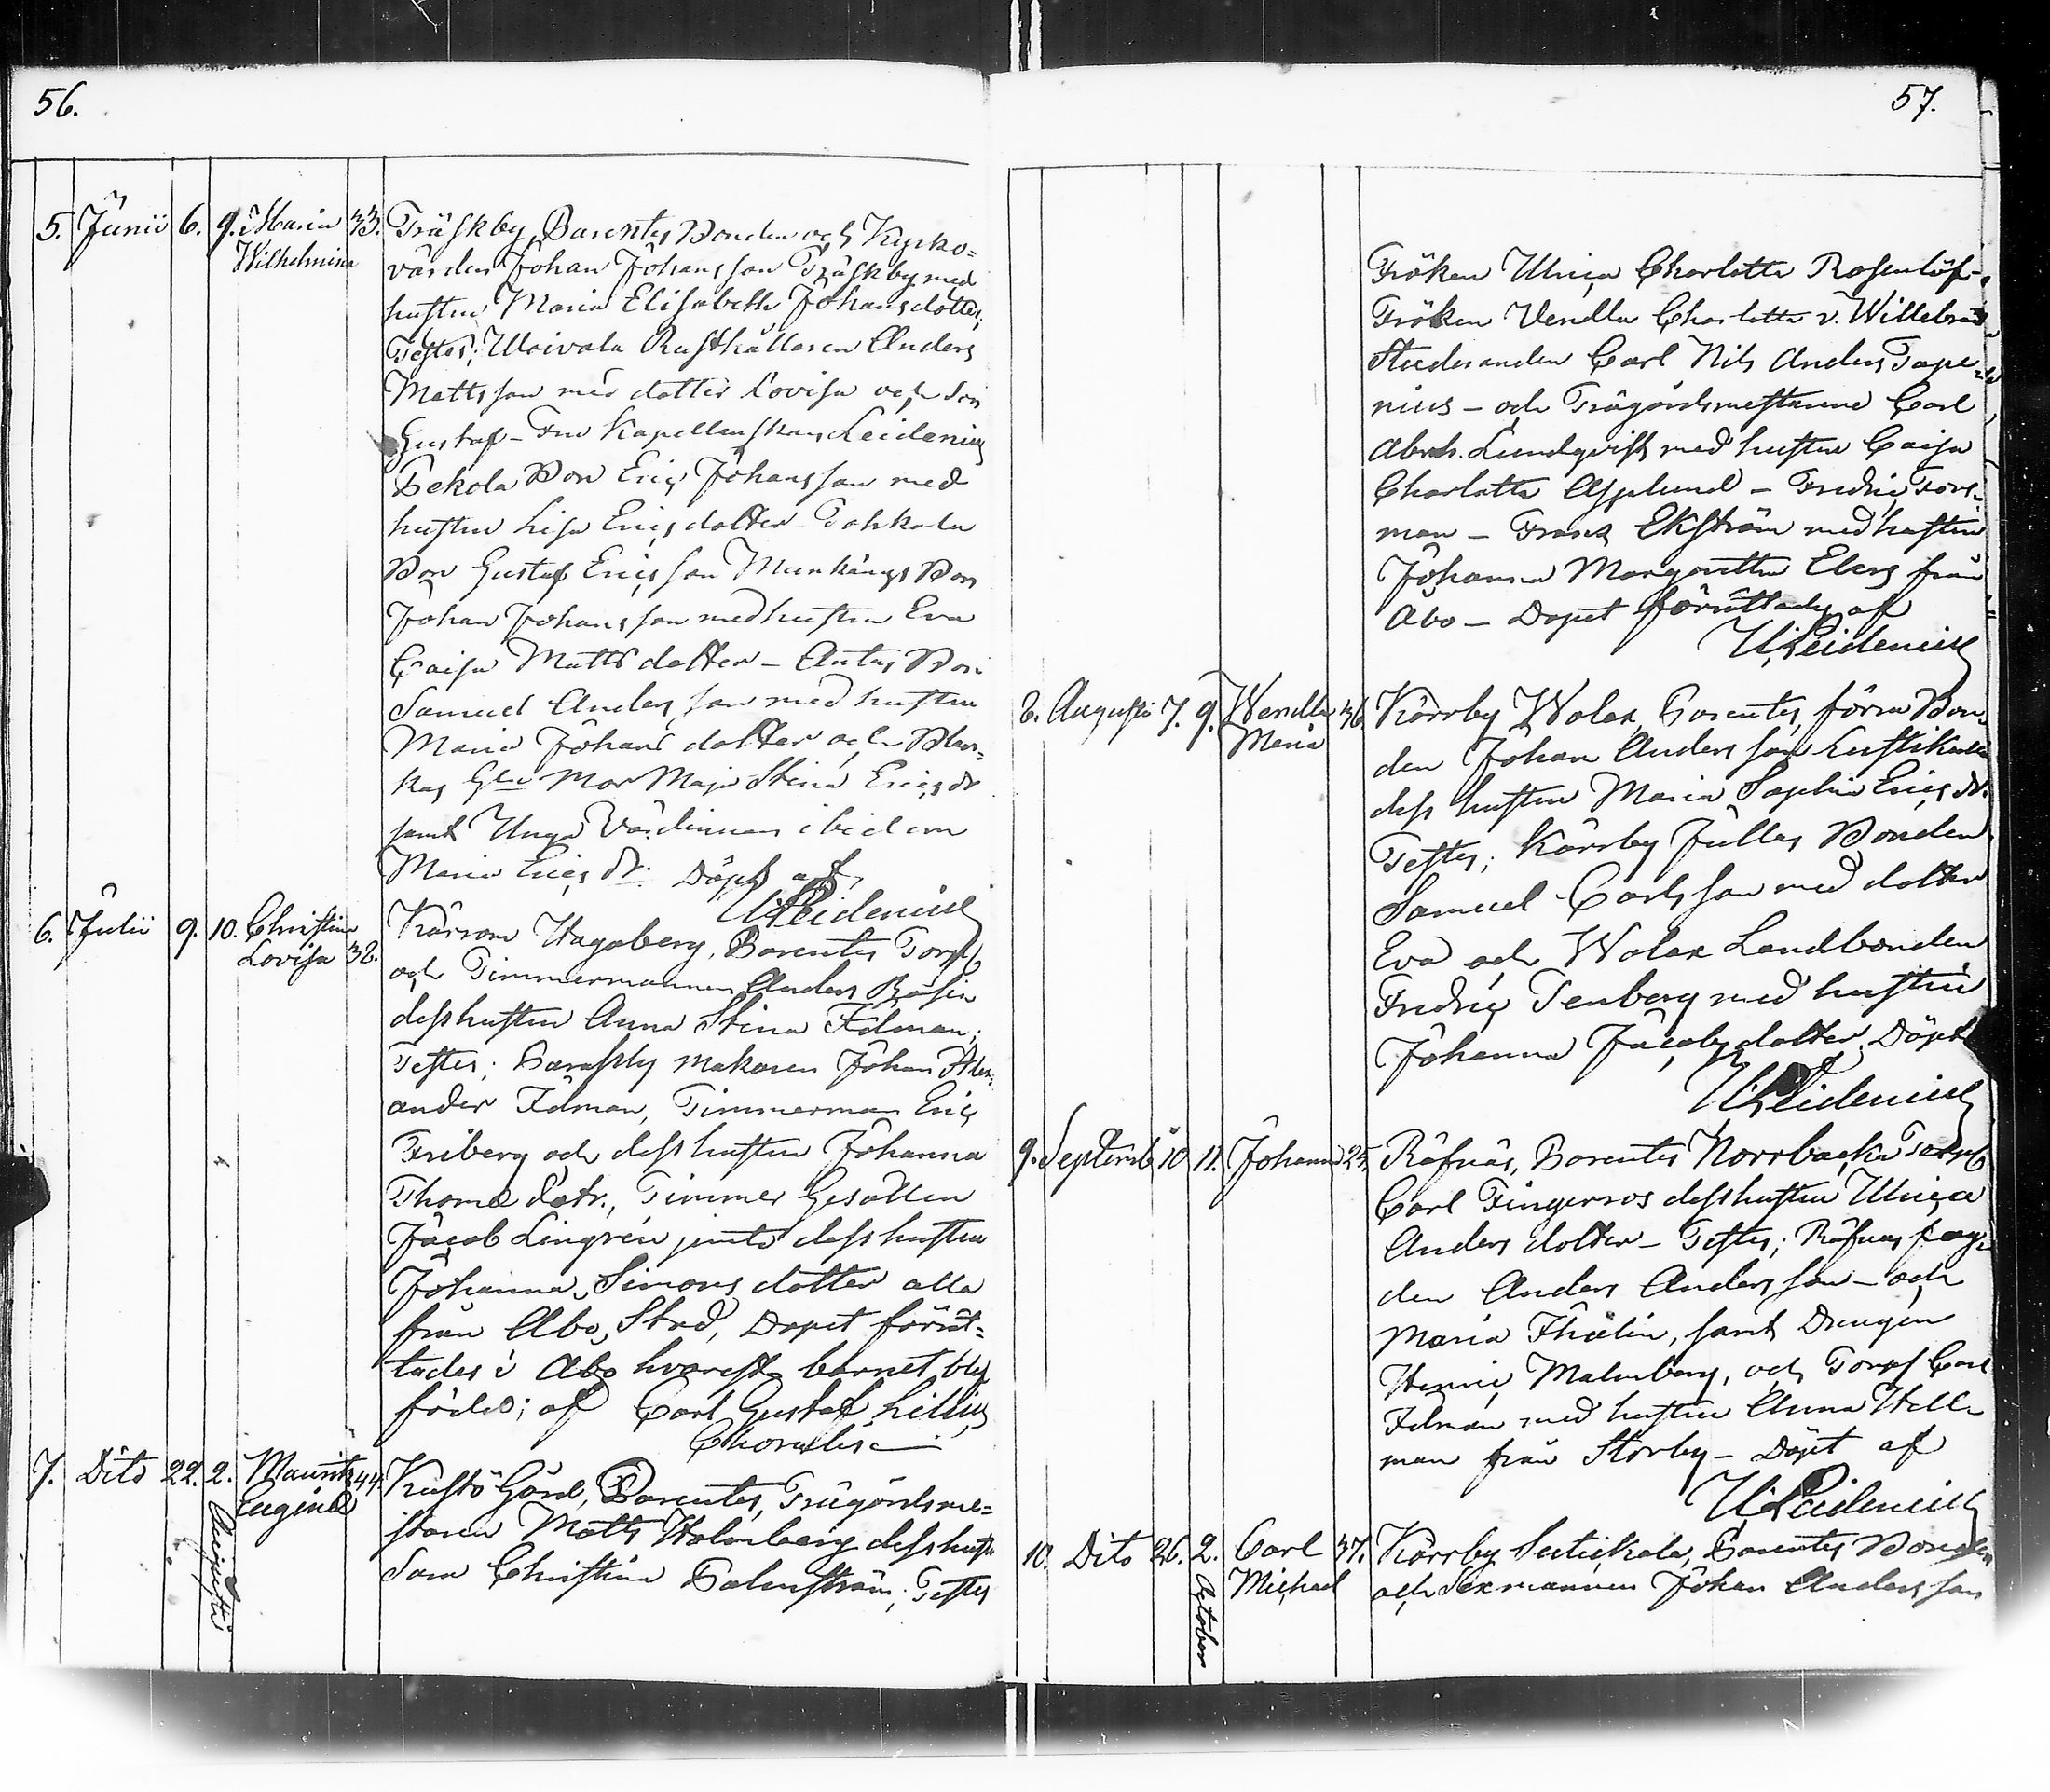 56.
5. Junii 6. 9. Maria 33. Träskby, Parentes Bonden och Kyrko=
Wilhelmina värden Johan Johansson Träskby med
hustru Maria Elisabeth Johansdotter;
Testes; Woivala Rusthållaren Anders
Mattsson med dotter Lovisa och Son
Gustaf – Fru Kapellanskan Leidenius
Pekola Bon Eric Johansson med
hustru Lisa Ericsdotter Tohkala
Bon Gustaf Ericsson Munkängs Bon
Johan Johansson med hustru Eva
Caisa Mattsdotter – Antas Bon
Samuel Andersson med hustru
Maria Johansdotter och
kas Gla Mor Maja Stina Ericsdr
samt Unga Värdinnan ibidem
Maria Ericsdr. Döpt af
Leidenius
6. Julii 9. 10. Christina Kärsom Hagaberg, Parentes Torp.
Lovisa 32. och Timmermannen Anders Rosin
dess hustru Anna Stina Idman;
Testes; makaren Johan Alex=
ander Idman, Timmerman Eric
Friberg och dess hustru Johanna
Thomæ dotr., Timmer Gesällen
Jacob Lingrén jemte dess hustru
Johanna Simonsdotter alla
från Åbo Stad, Dopet förrät=
tades i Åbo hvarest barnet blef
född; af Carl Gustaf Lillius
7. Dito 22. 2. Mauritz 44. Kustö Gård, Parentes, Trägårdsme=
Augusti Eugine staren Matts Holmberg dess hustru
Sara Christina Palmström; Testes
57.
Fröken Ulrica Charlotta Rosenlöf –
Fröken Vendla Charlotta v. Willebrand
Studeranden Carl Nils Anders Tope=
nius – och Trägårdsmästarne Carl
Abrah. Lundqvist med hustru Caisa
Charlotta Asplund – Fredric Fors=
man – Frans Ekström med hustru
Johanna Margaretha Eberg från
Åbo – Dopet förrättades af
Leidenius
8. Augusti 7. 9. Wendla 36. Kårrby Wolax, Parentes, förra Bon=
Maria den Johan Andersson
dess hustru Maria Sophia Ericsdr.
Testes; Kårrby Jullas Bonden
Samuel Carlsson med dotter
Eva och Wolax Landbonden
Fredric Tenberg med hustru
Johanna Jacobsdotter, Döpt
af Leidenius
9. Septemb. 10 11. Johanna 25. Räfnäs, Parentes Norrbacka Torp.
Carl Fingerroos dess hustru Ulrica
Andersdotter – Testes; Räfnäs
den Anders Andersson – och
Maria Thelin, samt Drengen
Henric Malmberg, och Torp. Carl
Idman med hustru Anna Hell=
man från Storby – Döpt af
Leidenius
10. Dito 26. 2. Carl 37. Kårrby Sutiskala, Parentes Bonden
October Michael och Sexmannen Johan Andersson